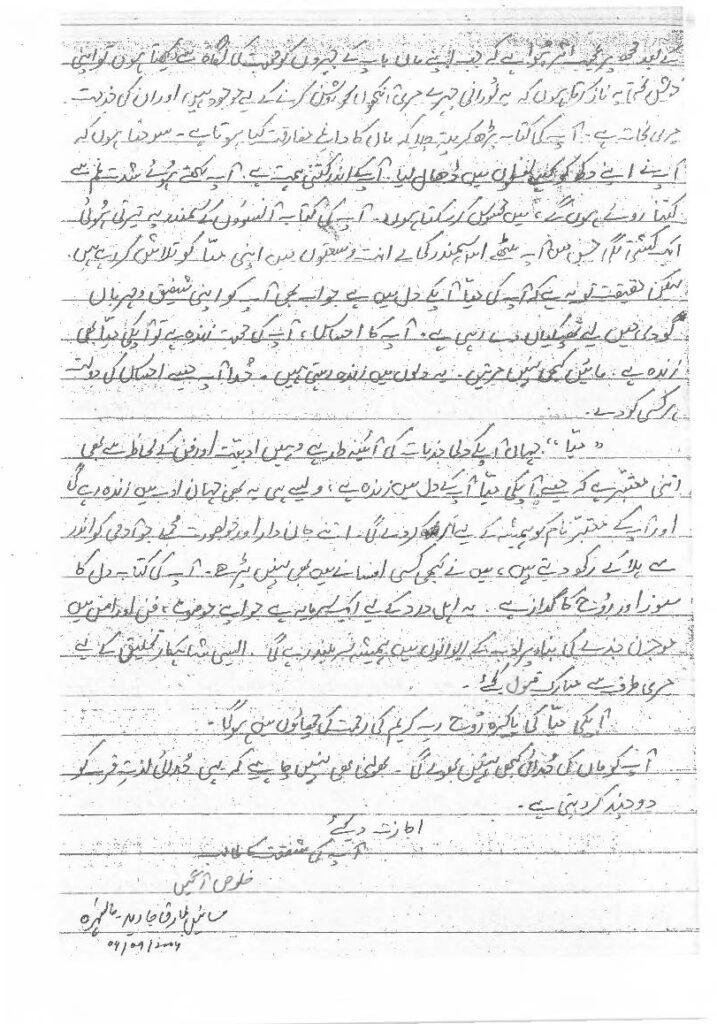 کے بعد مجھ پر عجب اثر ہوا ہے کہ جب اپنے ماں باپ کے چہروں کو محبت کی نگاہ سے دیکھتا ہوں تو اپنی
خوش بختی پہ ناز کرتا ہوں کہ یہ نُورانی چہرے میری آنکھوں کو روشن کرنے کے لیے موجود ہیں، اور ان کی خدمت
میری نجات ہے۔ آپ کی کتاب پڑھ کر پتہ چلا کہ ماں کا داغِ مفارقت کیا ہوتا ہے۔ سوچتا ہوں کہ
آپ نے اپنے دکھ کو کیسے لفظوں میں ڈھال لیا۔ آپکے اندر کتنی ہمت ہے۔ آپ لکھتے ہوئے شدتِ غم سے
کتنا روئے ہوں گے، میں محسوس کر سکتا ہوں۔ آپ کی کتاب آنسوؤں کے سمندر پہ تیرتی ہوئی
ایک کشتی جس میں آپ بیٹھے اس سمندر کی بے انت وسعتوں میں اپنی میّا کو تلاش کر رہے ہیں۔
لیکن حقیقت تو یہ ہے کہ آپ کی میّا آپکے دل میں ہے جو اب بھی آپ کو اپنی شفیق و مہرباں
گود میں لیے تھپکیاں دے رہی ہے۔ آپ کا احساس، آپ کی محبت زندہ ہے تو آپکی میّا بھی
زندہ ہے۔ مائیں کبھی نہیں مرتیں۔ یہ دلوں میں زندہ رہتی ہیں۔ خُدا آپ جیسے احساس کی دولت
ہر کسی کو دے۔
"میّا" جہاں آپکے دلی جذبات کی آئینہ دار ہے وہیں ادبیت اور فن کے لحاظ سے بھی
اتنی معتبر ہے کہ جیسے آپکی میّا آپکے دل میں زندہ ہے، ویسے ہی یہ بھی جہانِ ادب میں زندہ رہے گی
اور آپ کے معتبر نام کو ہمیشہ کے لیے امر کر دے گی۔ اتنے جان دار اور خوبصورت جو آدمی کو اندر
سے ہلا کے رکھ دیتے ہیں، میں نے کبھی کسی افسانے میں بھی نہیں پڑھے۔ آپ کی کتاب دل کا
سوز اور روح کا گداز ہے۔ یہ اہلِ درد کے لیے ایک سرمایہ ہے جو اپنے موضوع، فن اور اس میں
موجزن جذبے کی بناء پر ادب کے ایوانوں میں ہمیشہ سربلند رہے گا۔ ایسی شاہکار تخلیق کے لیے
میری طرف سے مبارک قبول کیجئے۔
آپکی میّا کی پاکیزہ رُوح ربِ کریم کی رحمت کی چھاؤں میں ہو گی۔
آپ کو ماں کی جُدائی کبھی نہیں بھولے گی۔ بھولنی بھی نہیں چاہیے کہ یہی جُدائی لذتِ قرب کو
دو چند کر دیتی ہے۔
اجازت دیجئے
آپ کی شفقت کا طالب
خلوص آگیں
طارق جاوید۔ مانسہرہ